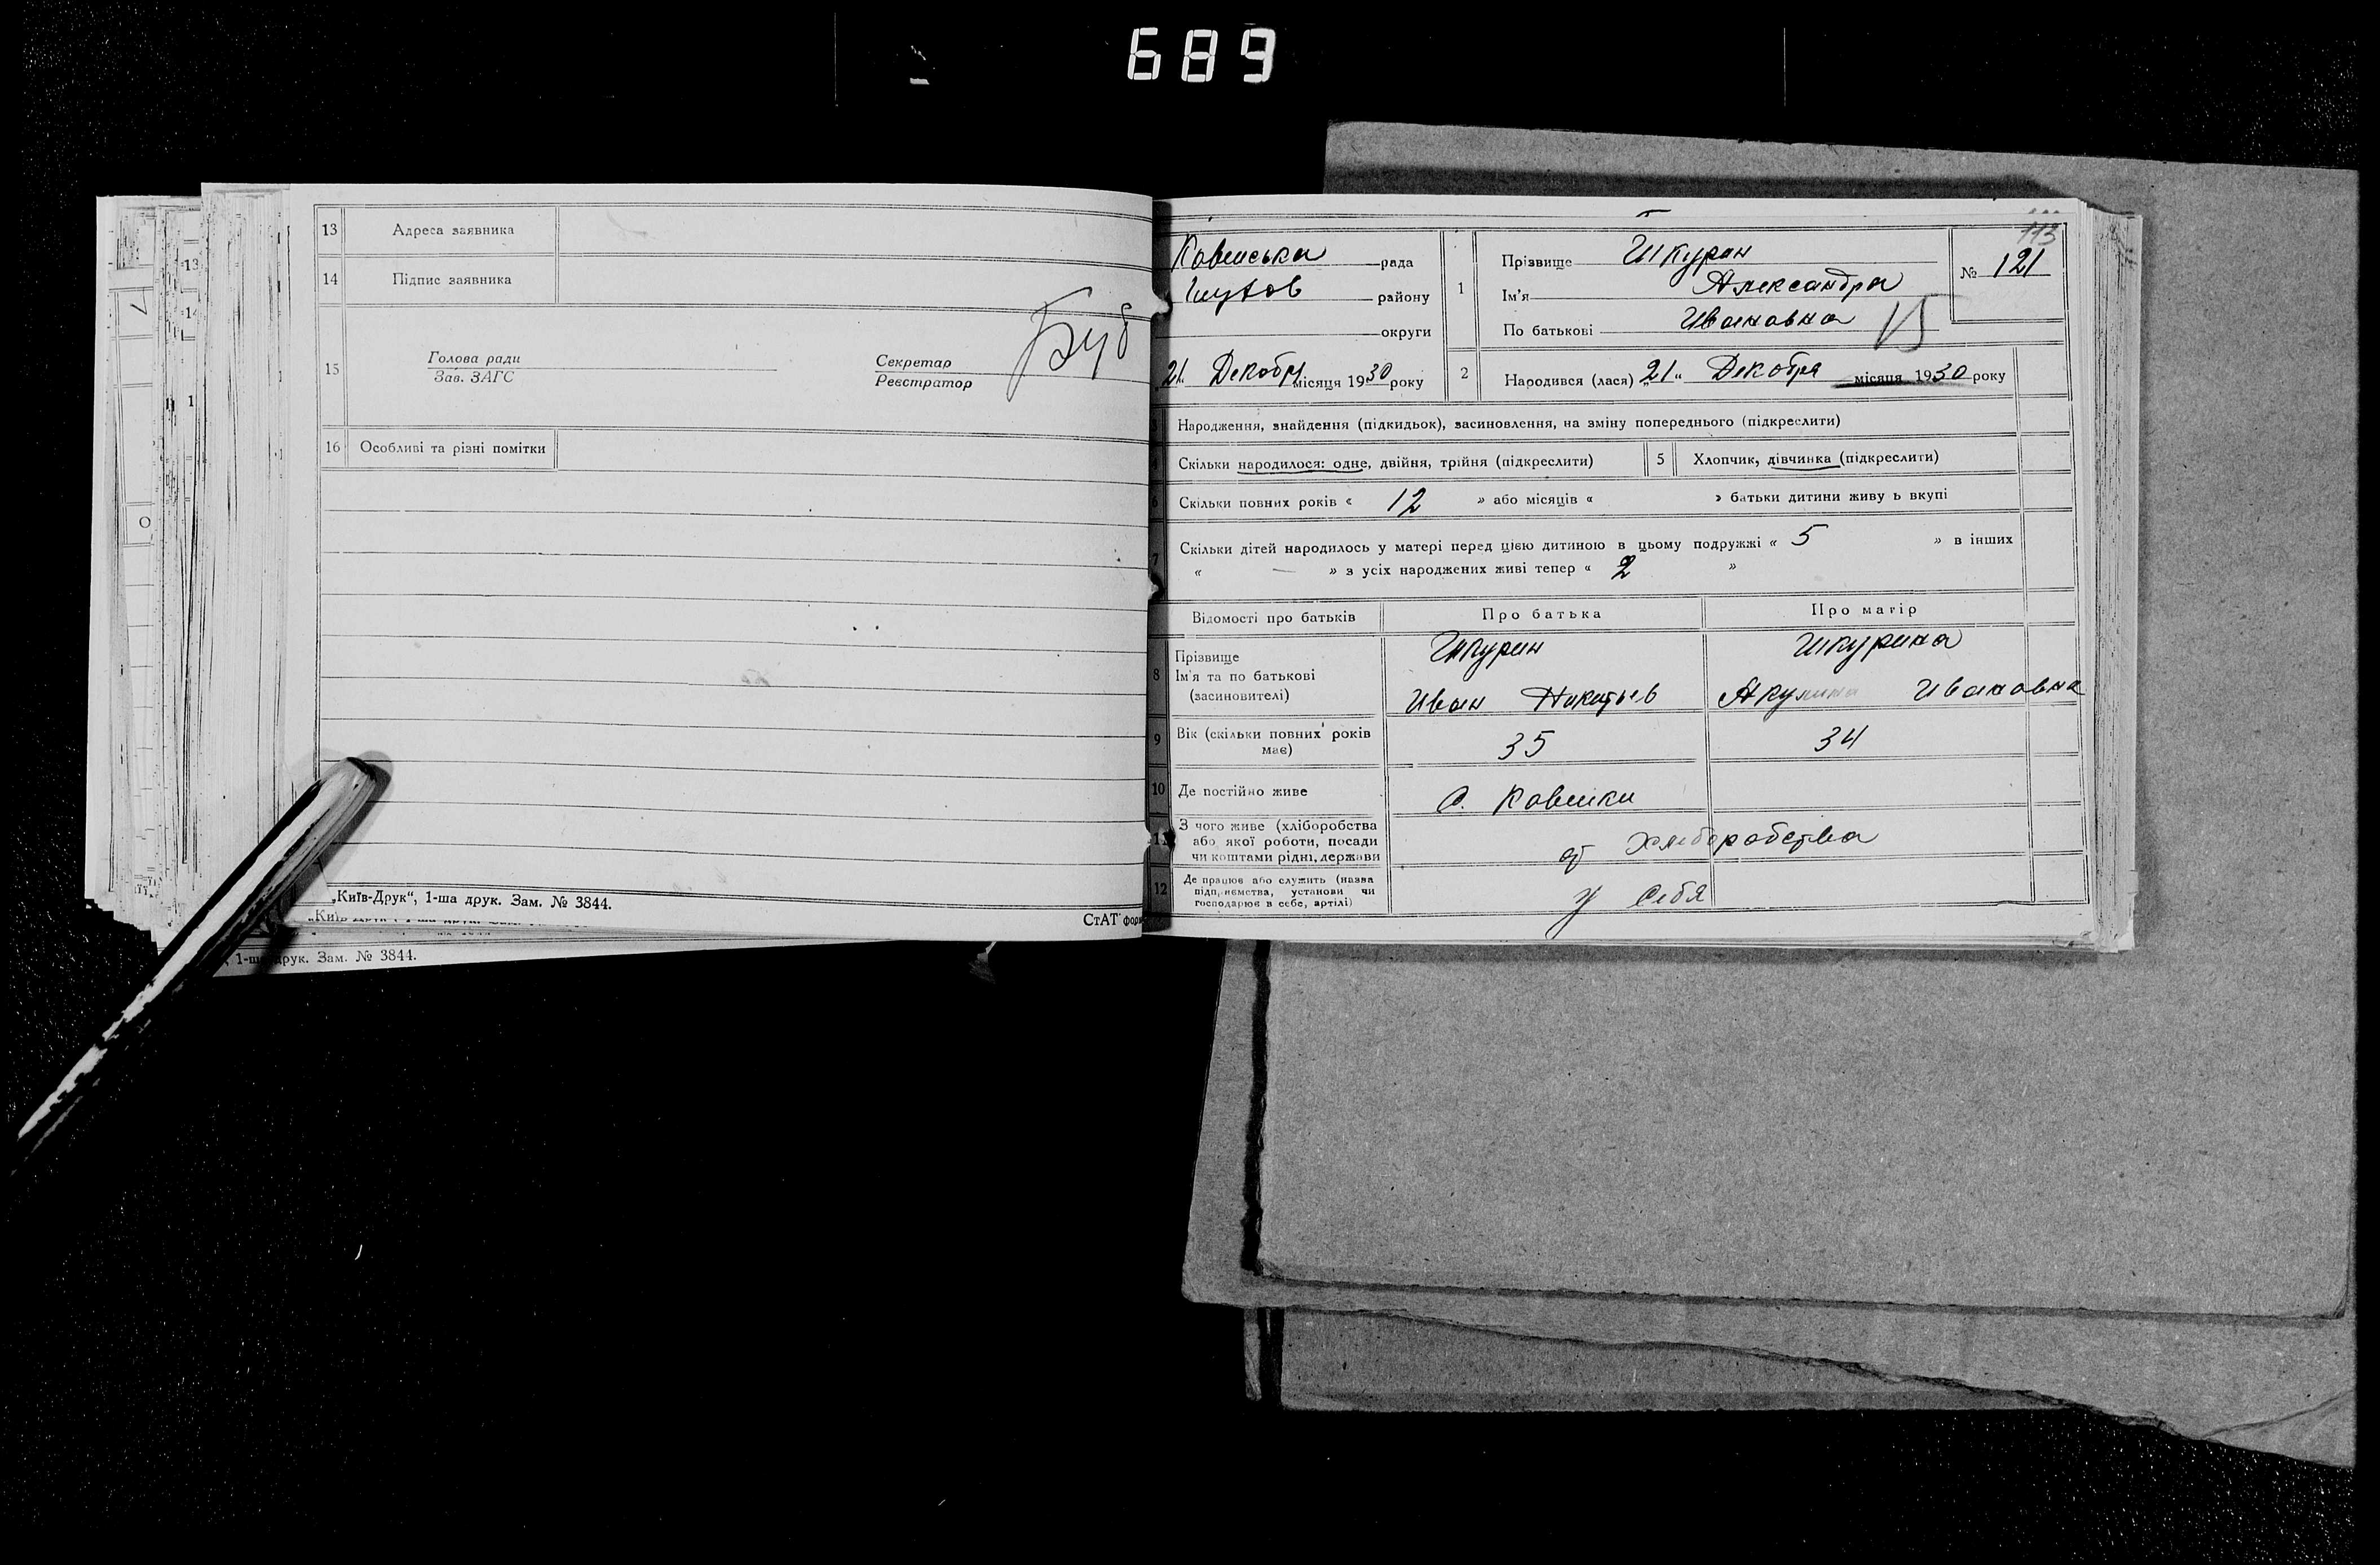 689
13 Адреса заявника
14 Підпис заявника
15 Голова ради
Зав. ЗАГС
Секретар
Реєстратор
16 Особливі та різні помітки
„Київ-Друк“, 1-ша друк. Зам. № 3844.
СтАТ
1-ша друк. Зам. № 3844.
рада
району
округи
21 Декобря місяця 1930 року
113
№ 121
1 Прізвище Шкурин
Ім'я Александра
По батькові Ивановна
2 Народився (лася) „21“ Декобря місяця 1930 року
Народження, знайдення (підкидьок), засиновлення, на зміну попереднього (підкреслити)
Скільки народилося: одне, двійня, трійня (підкреслити)
5 Хлопчик, дівчинка (підкреслити)
6 Скільки повних років « 12 » або місяців « » батьки дитини живу ь вкупі
7 Скільки дітей народилось у матері перед цією дитиною в цьому подружжі « 5 » в інших
« — » з усіх народжених живі тепер « 2 »
Відомості про батьків Про батька Про матір
8 Прізвище
Ім'я та по батькові
(засиновителі)
Шкурин
Иван
Шкурина
Акулина Ивановна
9 Вік (скільки повних років
має)
35 34
10 Де постійно живе С. Ковшики
11 З чого живе (хліборобства
або якої роботи, посади
чи коштами рідні, держави
от Хлеборобства
12 Де працює або служить (назва
підприємства, установи чи
господарює в себе, артілі)
У Себя